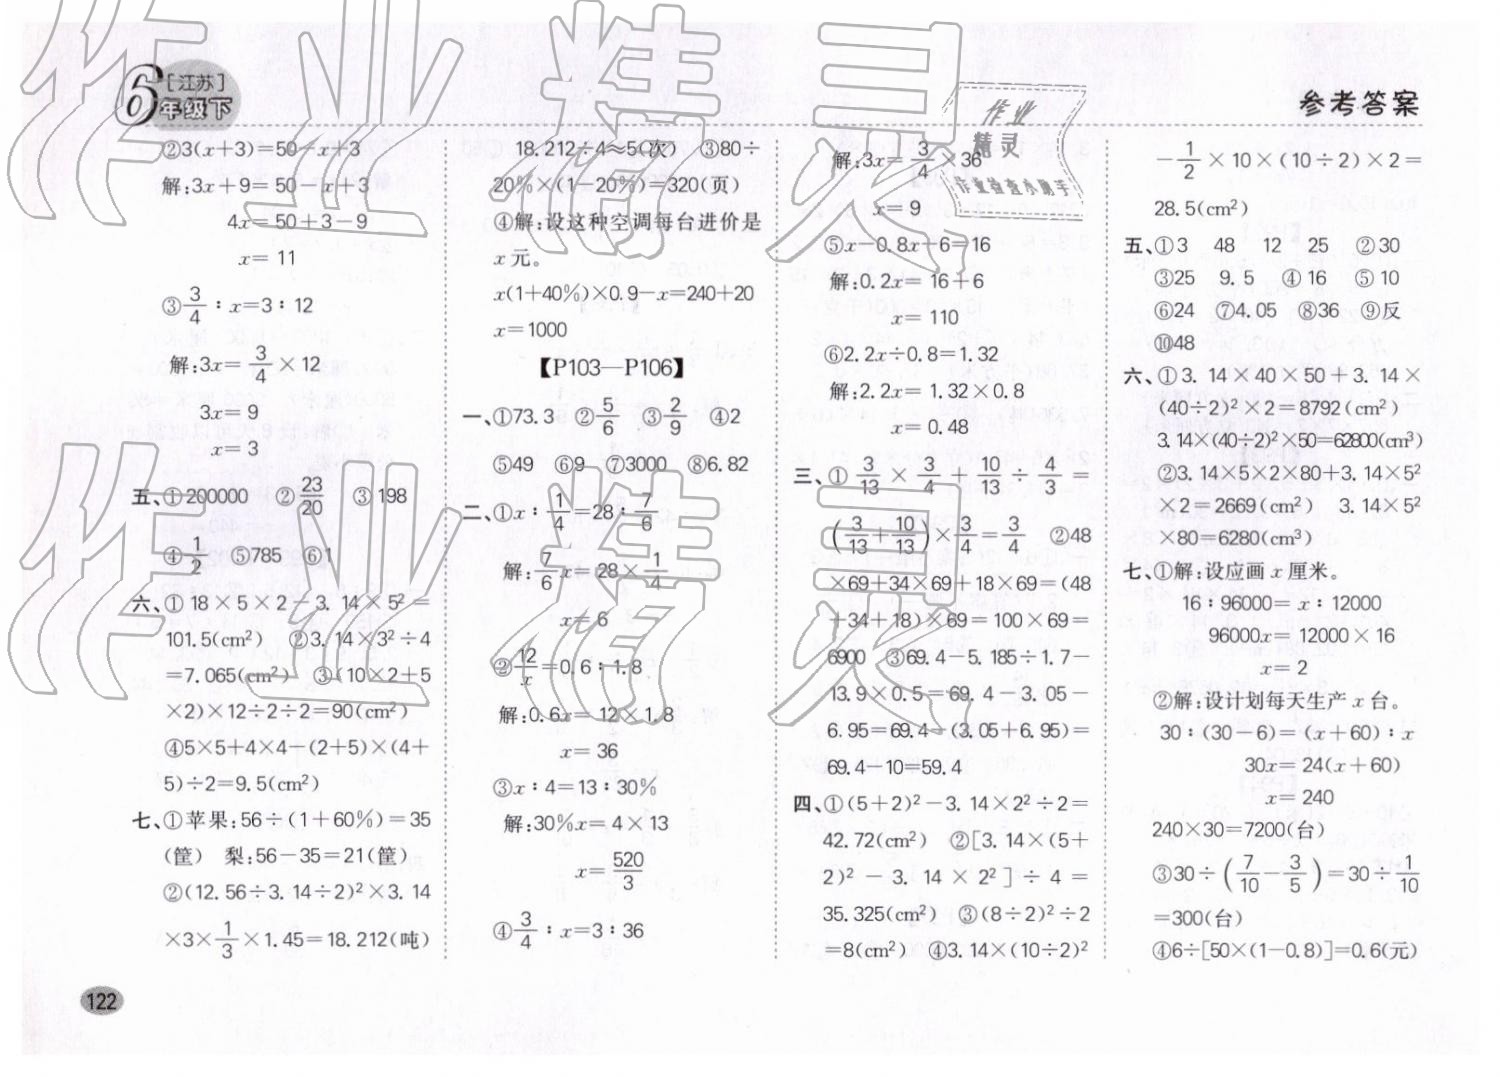 6 [江苏]
年级下
参考答案
作业
精灵
作业检查小助手
②3(x+3)=50-x+3
解:3x+9=50-x+3
4x=50+3-9
x=11
③3/4∶x=3∶12
解:3x=3/4×12
3x=9
x=3
五、①200000 ②23/20 ③198
④1/2 ⑤785 ⑥1
六、①18×5×2-3.14×5²=
101.5(cm²) ②3.14×3²÷4
=7.065(cm²) ③(10×2+5
×2)×12÷2÷2=90(cm²)
④5×5+4×4-(2+5)×(4+
5)÷2=9.5(cm²)
七、①苹果:56÷(1+60%)=35
(筐) 梨:56-35=21(筐)
②(12.56÷3.14÷2)²×3.14
×3×1/3×1.45=18.212(吨)
18.212÷4≈5(次) ③80÷
20%×(1-20%)=320(页)
④解:设这种空调每台进价是
x元。
x(1+40%)×0.9-x=240+20
x=1000
【P103—P106】
一、①73.3 ②5/6 ③2/9 ④2
⑤49 ⑥9 ⑦3000 ⑧6.82
二、①x∶1/4=28∶7/6
解:7/6x=28×1/4
x=6
②12/x=0.6∶1.8
解:0.6x=12×1.8
x=36
③x∶4=13∶30%
解:30%x=4×13
x=520/3
④3/4∶x=3∶36
解:3x=3/4×36
x=9
⑤x-0.8x+6=16
解:0.2x=16+6
x=110
⑥2.2x÷0.8=1.32
解:2.2x=1.32×0.8
x=0.48
三、①3/13×3/4+10/13÷4/3=
(3/13+10/13)×3/4=3/4 ②48
×69+34×69+18×69=(48
+34+18)×69=100×69=
6900 ③69.4-5.185÷1.7-
13.9×0.5=69.4-3.05-
6.95=69.4-(3.05+6.95)=
69.4-10=59.4
四、①(5+2)²-3.14×2²÷2=
42.72(cm²) ②[3.14×(5+
2)²-3.14×2²]÷4=
35.325(cm²) ③(8÷2)²÷2
=8(cm²) ④3.14×(10÷2)²
-1/2×10×(10÷2)×2=
28.5(cm²)
五、①3 48 12 25 ②30
③25 9.5 ④16 ⑤10
⑥24 ⑦4.05 ⑧36 ⑨反
⑩48
六、①3.14×40×50+3.14×
(40÷2)²×2=8792(cm²)
3.14×(40÷2)²×50=62800(cm³)
②3.14×5×2×80+3.14×5²
×2=2669(cm²) 3.14×5²
×80=6280(cm³)
七、①解:设应画x厘米。
16∶96000=x∶12000
96000x=12000×16
x=2
②解:设计划每天生产x台。
30∶(30-6)=(x+60)∶x
30x=24(x+60)
x=240
240×30=7200(台)
③30÷(7/10-3/5)=30÷1/10
=300(台)
④6÷[50×(1-0.8)]=0.6(元)
122
作业精灵
作业精灵